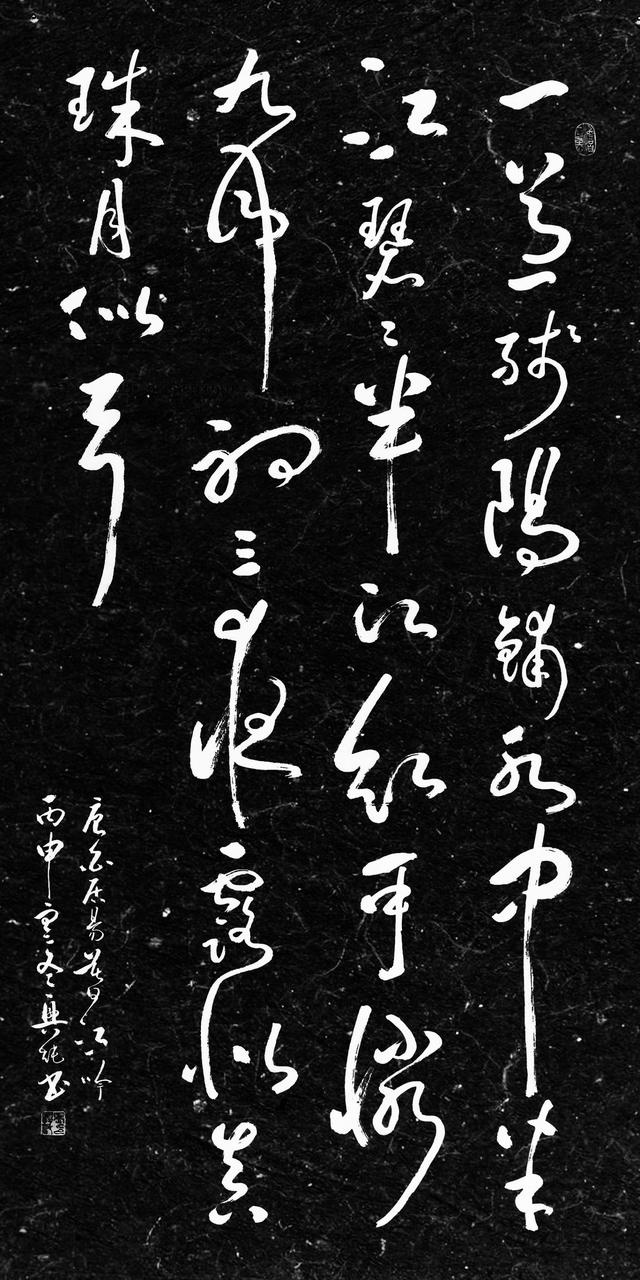 一道残陽鋪水中半
江瑟々半江紅可憐
九月初三夜露似真
珠月似弓
唐白居易暮江吟
丙申寒冬興书